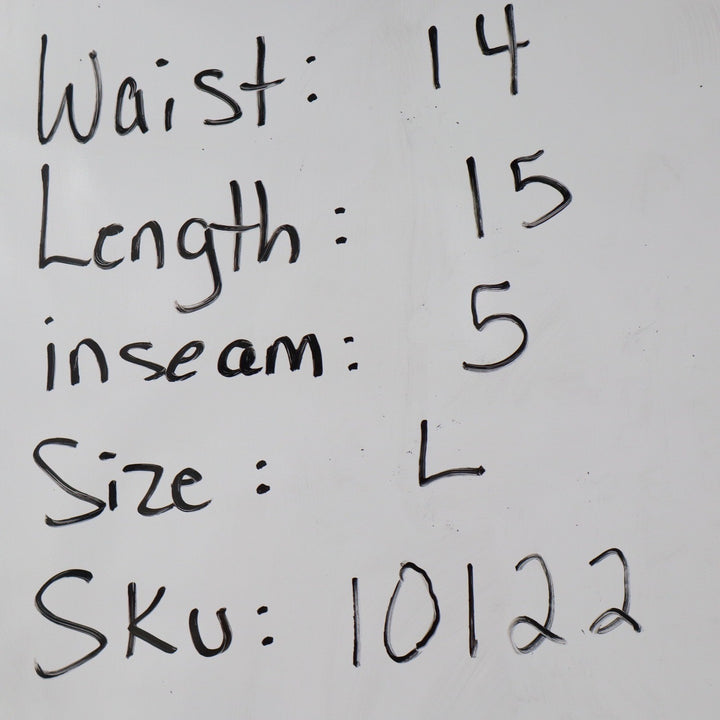 Waist: 14
Length: 15
inseam: 5
Size: L
SKU: 10122